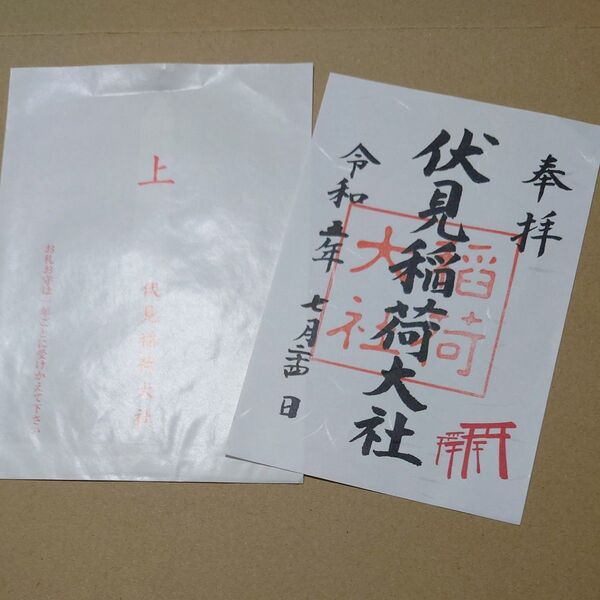 上
伏見稲荷大社
お札お守は一年ごとに受けかえて下さい
奉拝
伏見稲荷大社
稲荷
大社
令和五年 七月 日